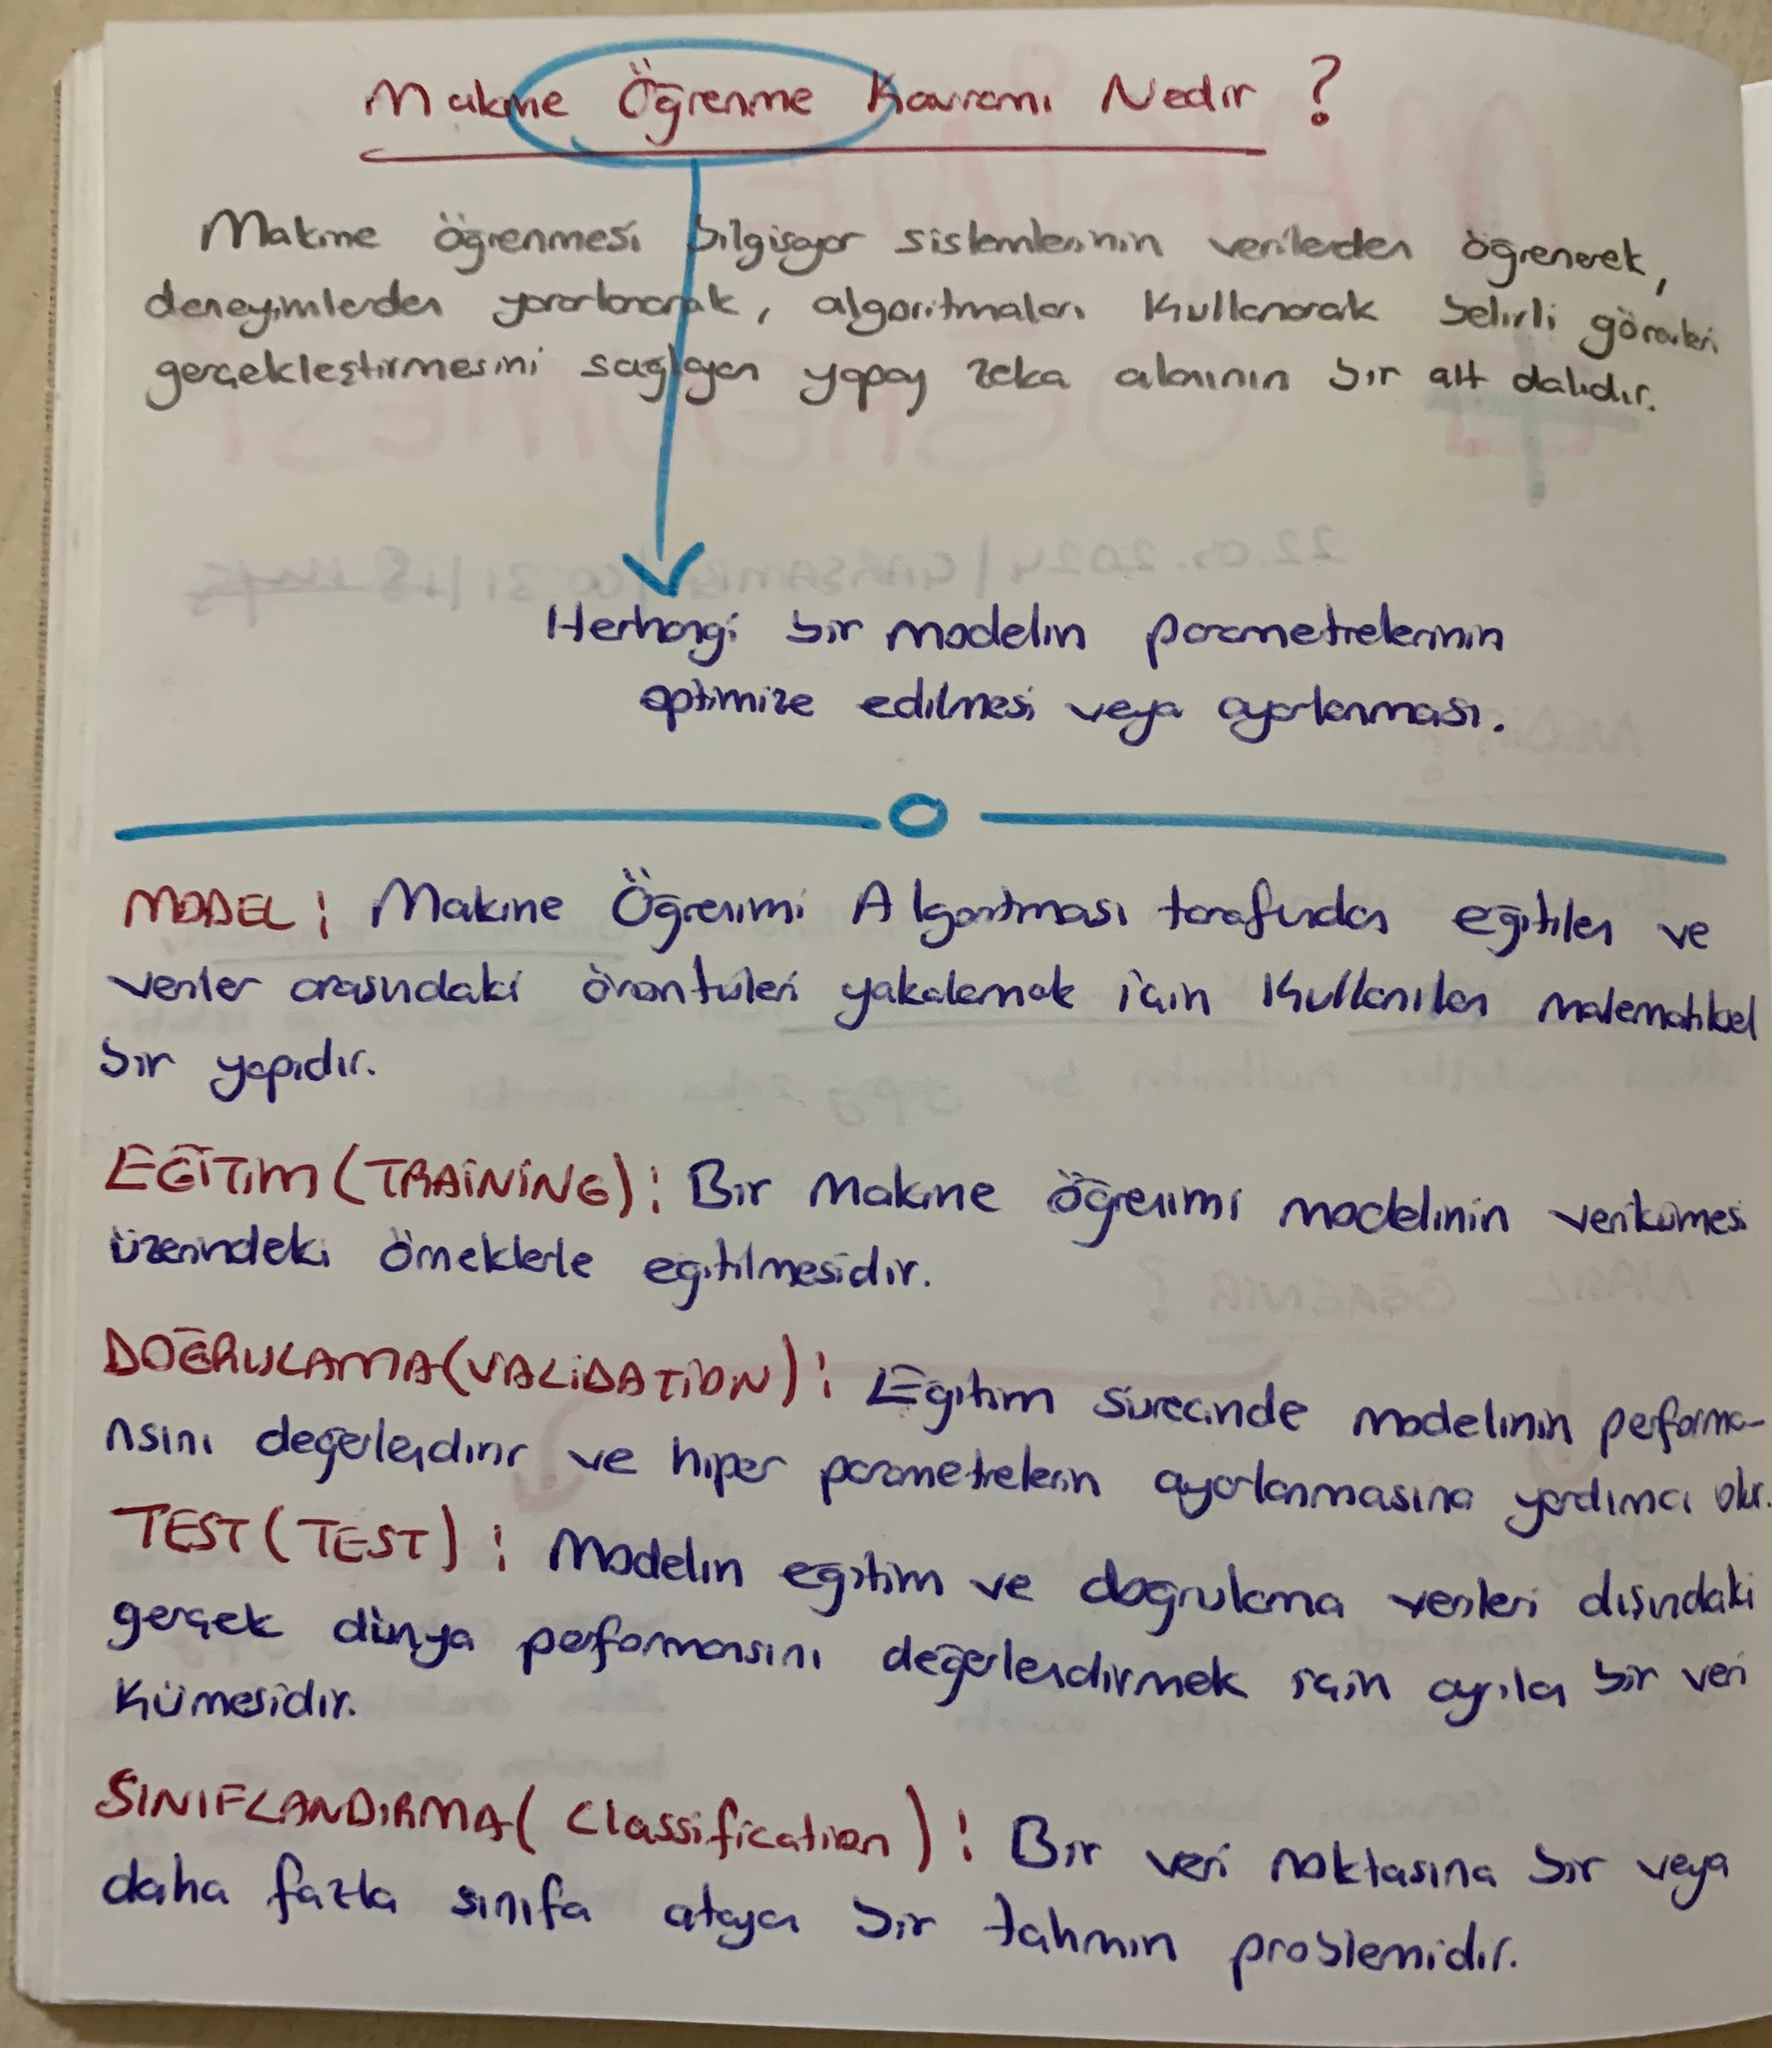 Makine Öğrenme Kavramı Nedir ?
Makine öğrenmesi bilgisayar sistemlerinin verilerden öğrenerek,
deneyimlerden yararlanarak, algoritmaları kullanarak belirli görevleri
gerçekleştirmesini sağlayan yapay zeka alanının bir alt dalıdır.
Herhangi bir modelin parametrelerinin
optimize edilmesi veya ayarlanması.
MODEL : Makine Öğrenimi Algoritması tarafından eğitilen ve
veriler arasındaki örüntüleri yakalamak için kullanılan matematiksel
bir yapıdır.
EĞİTİM (TRAİNİNG) : Bir makine öğrenimi modelinin veri kümesi
üzerindeki örneklerle eğitilmesidir.
DOĞRULAMA (VALİDATİON) : Eğitim sürecinde modelinin performa-
nsını değerlendirir ve hiper parametrelerin ayarlanmasına yardımcı olur.
TEST (TEST) : Modelin eğitim ve doğrulama verileri dışındaki
gerçek dünya performansını değerlendirmek için ayrılan bir veri
kümesidir.
SINIFLANDIRMA (Classification) : Bir veri noktasına bir veya
daha fazla sınıfa atayan bir tahmin problemidir.